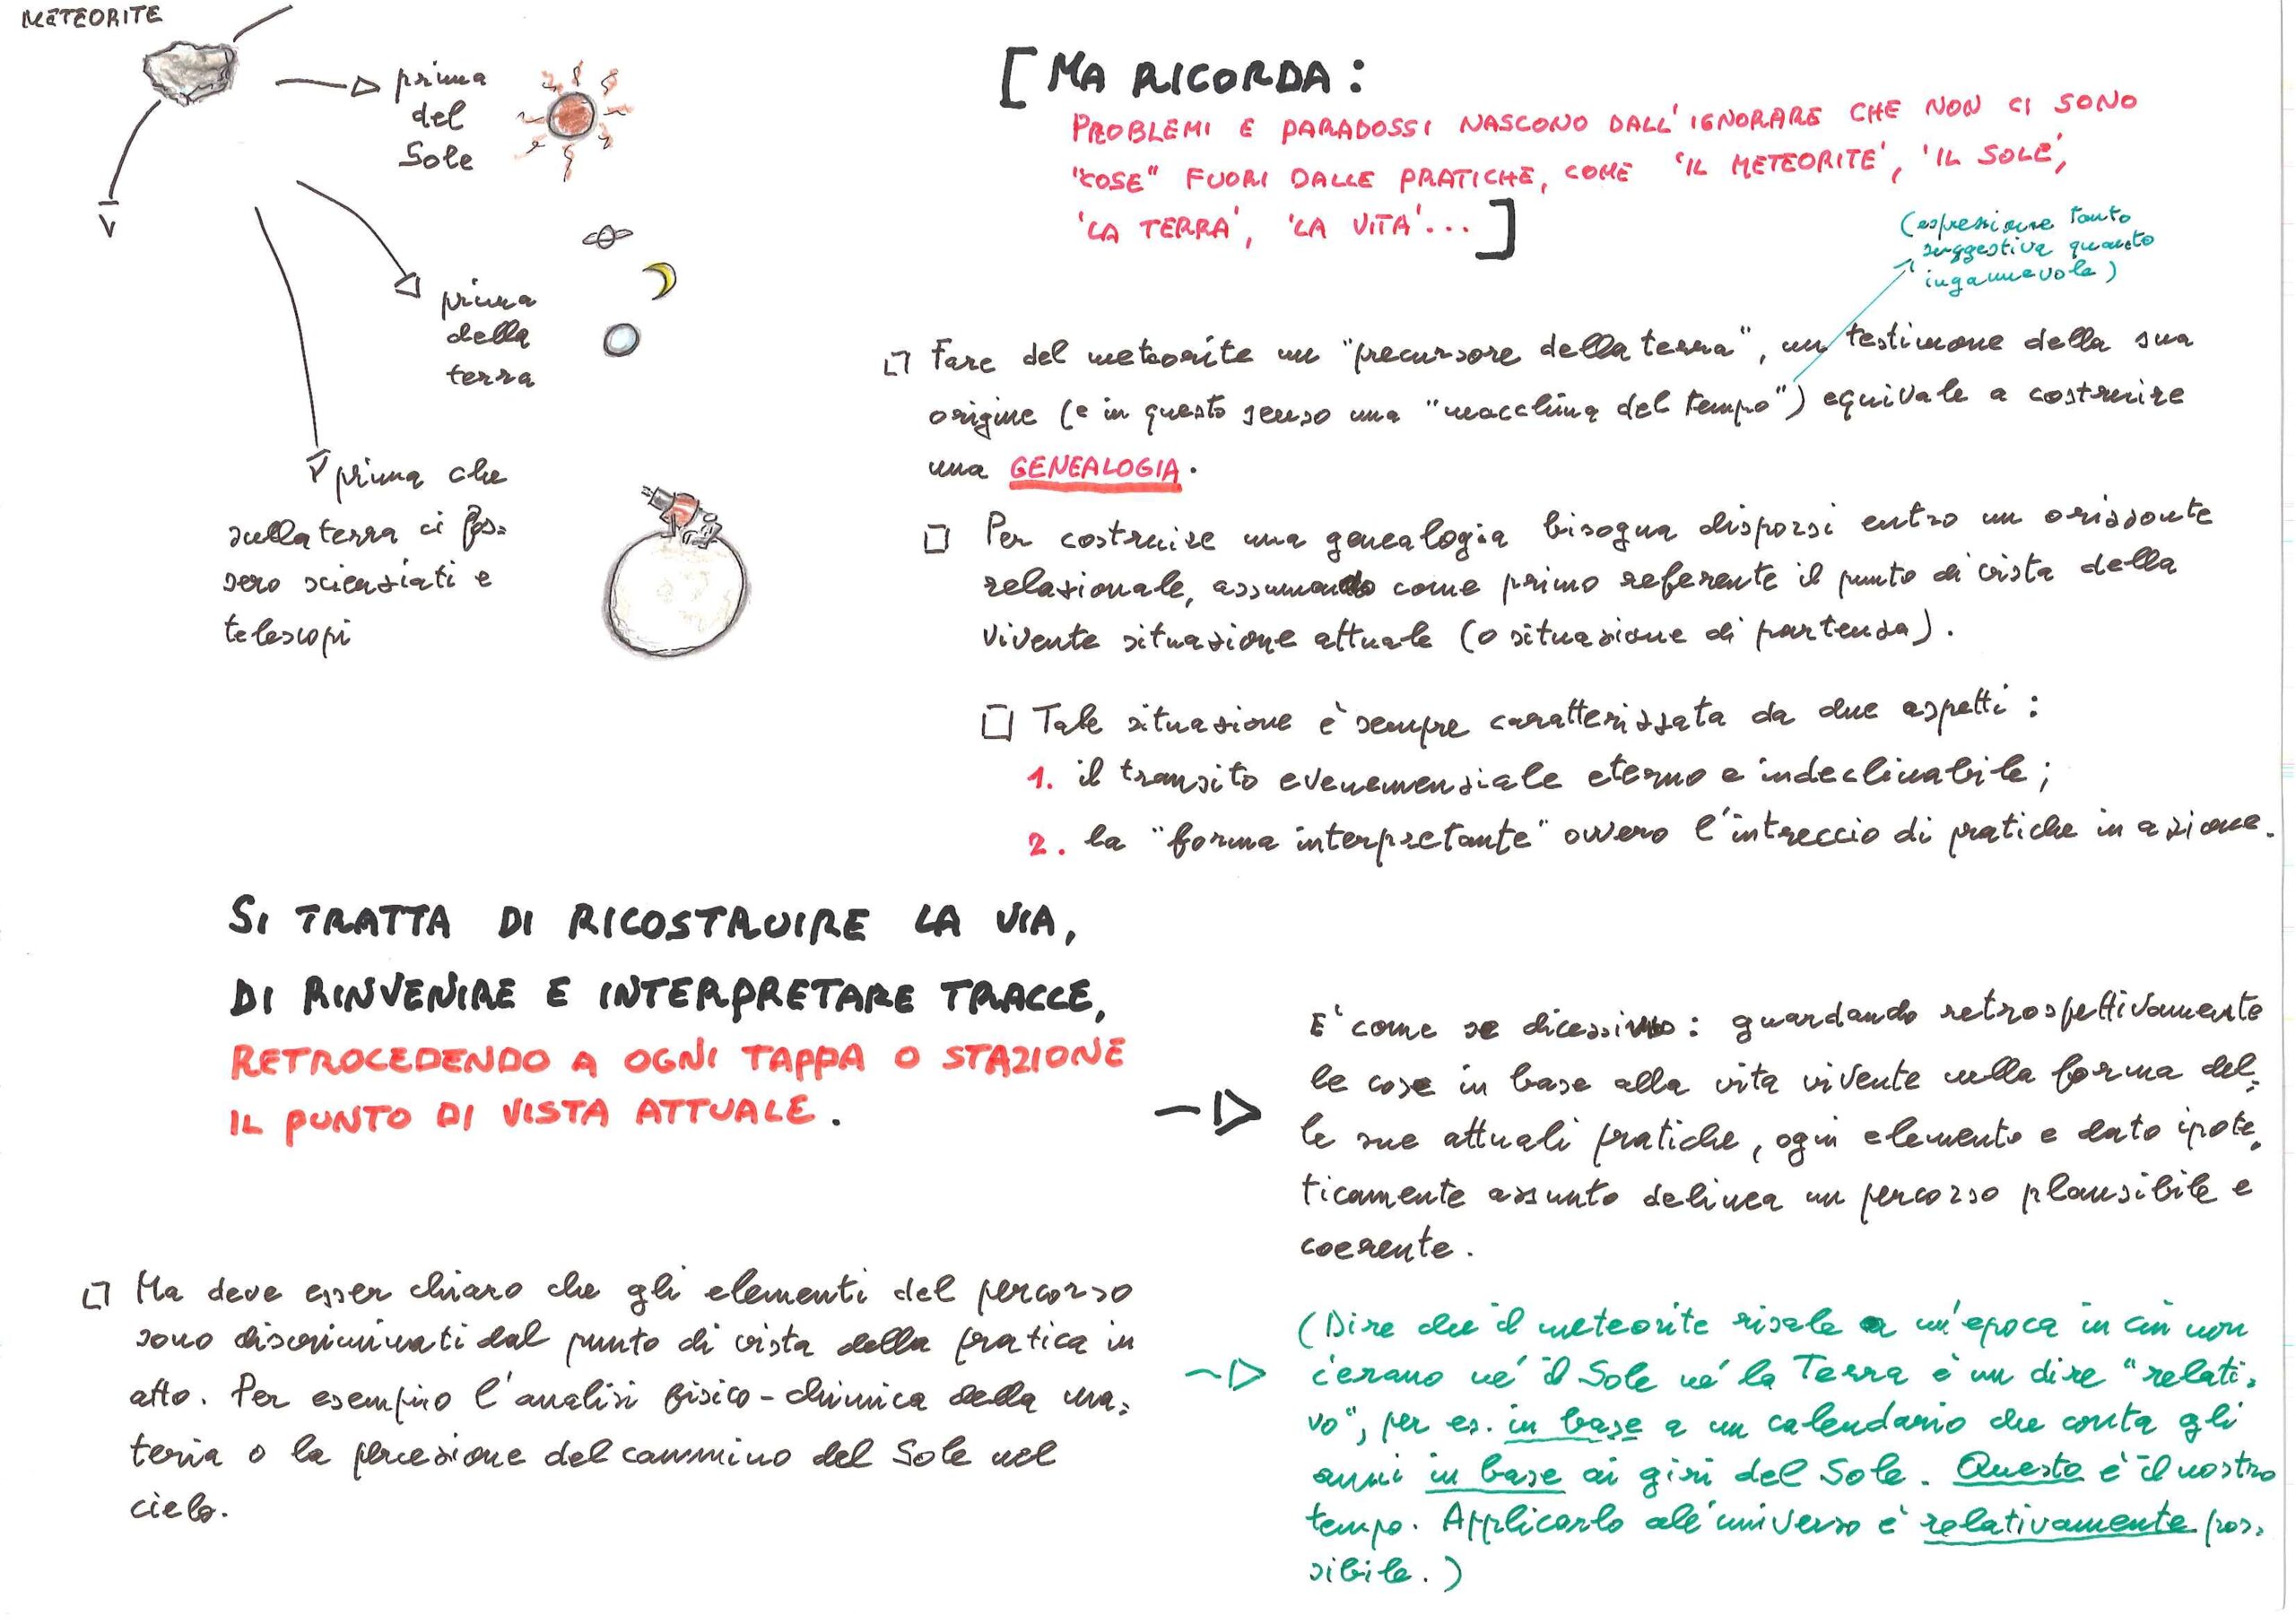 METEORITE
prima
del
Sole
prima
della
terra
prima che
sulla terra ci fos=
sero scienziati e
telescopi
[MA RICORDA:
PROBLEMI E PARADOSSI NASCONO DALL'IGNORARE CHE NON CI SONO
"COSE" FUORI DALLE PRATICHE, COME 'IL METEORITE', 'IL SOLE',
'LA TERRA', 'LA VITA'...]
(espressione tanto
suggestiva quanto
ingannevole)
Fare del meteorite un "precursore della terra", un testimone della sua
origine (e in questo senso una "macchina del tempo") equivale a costruire
una GENEALOGIA.
Per costruire una genealogia bisogna disporsi entro un orizzonte
relazionale, assumendo come primo referente il punto di vista della
vivente situazione attuale (o situazione di partenza).
Tale situazione è sempre caratterizzata da due aspetti:
1. il transito evenemenziale eterno e indeclinabile;
2. la "forma interpretante" ovvero l'intreccio di pratiche in azione.
SI TRATTA DI RICOSTRUIRE LA VIA,
DI RINVENIRE E INTERPRETARE TRACCE,
RETROCEDENDO A OGNI TAPPA O STAZIONE
IL PUNTO DI VISTA ATTUALE.
E' come se dicessimo: guardando retrospettivamente
le cose in base alla vita vivente nella forma del=
le sue attuali pratiche, ogni elemento e dato ipote=
ticamente assunto delinea un percorso plausibile e
coerente.
Ma deve esser chiaro che gli elementi del percorso
sono discriminati dal punto di vista della pratica in
atto. Per esempio l'analisi fisico-chimica della ma=
teria o la percezione del cammino del Sole nel
cielo.
(Dire che il meteorite risale a un'epoca in cui non
c'erano né il Sole né la Terra è un dire "relati=
vo", per es. in base a un calendario che conta gli
anni in base ai giri del Sole. Questo è il nostro
tempo. Applicarlo all'universo è relativamente pos=
sibile.)